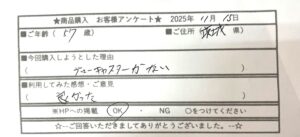 ★商品購入 お客様アンケート★ 2025年 11月 15日
■ご年齢( 57 )歳 ■ご住所 茨城 県
■今回購入しようとした理由
デューキャスターがない
■利用してみた感想・ご意見
良かった
※HPへの掲載 OK ・ NG ○をつけてください
☆…ご回答いただきましてありがとうございました。…☆